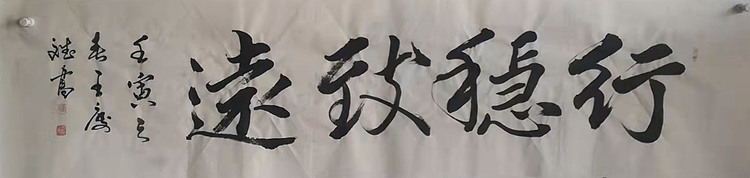 行穩致遠
壬寅之
春王慶
斌書